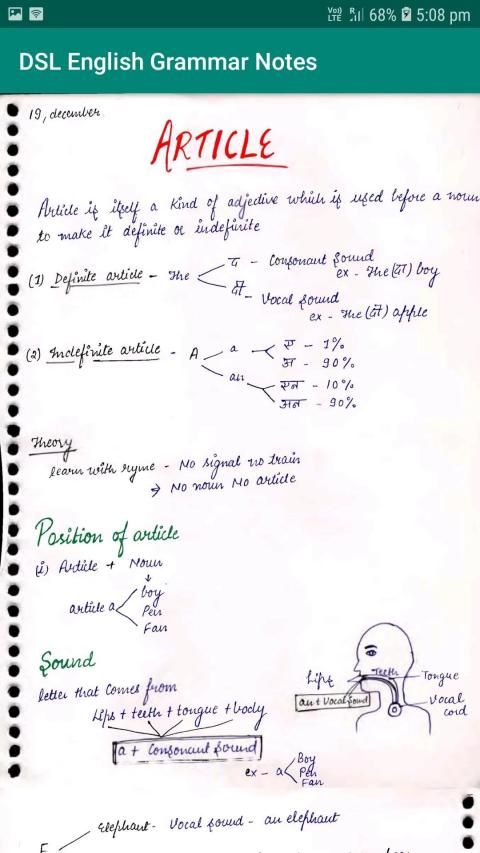 68% 5:08 pm
DSL English Grammar Notes
19, december
ARTICLE
Article is itself a kind of adjective which is used before a noun
to make it definite or indefinite
(1) Definite article - The
द - Consonant sound
ex - The (दा) boy
दी - Vocal sound
ex - The (दी) apple
(2) Indefinite article - A
a
ए - 1%
अ - 90%
an
एन - 10%
अन - 90%
Theory
learn with ryme - No signal no train
→ No noun No article
Position of article
(i) Article + Noun
article a
boy
Pen
Fan
Sound
letter that comes from
Lips + teeth + tongue + body
a + Consonant sound
ex - a
Boy
Pen
Fan
Lips
Teeth
Tongue
an + Vocal sound
Vocal
cord
Elephant - Vocal sound - an elephant
E